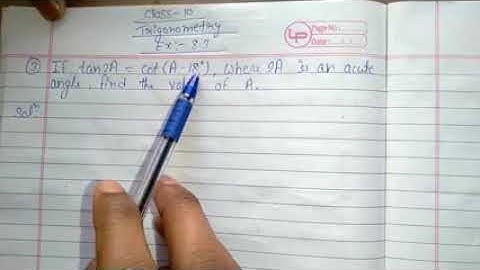 Class-10
Trigonometry
Ex:- 8.3
Page No.:
Date:
③ If tan2A = cot(A-18°), where 2A is an acute
angle, find the value of A.
Solⁿ